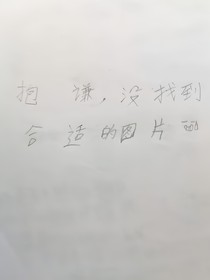 抱谦,没找到
合适的图片